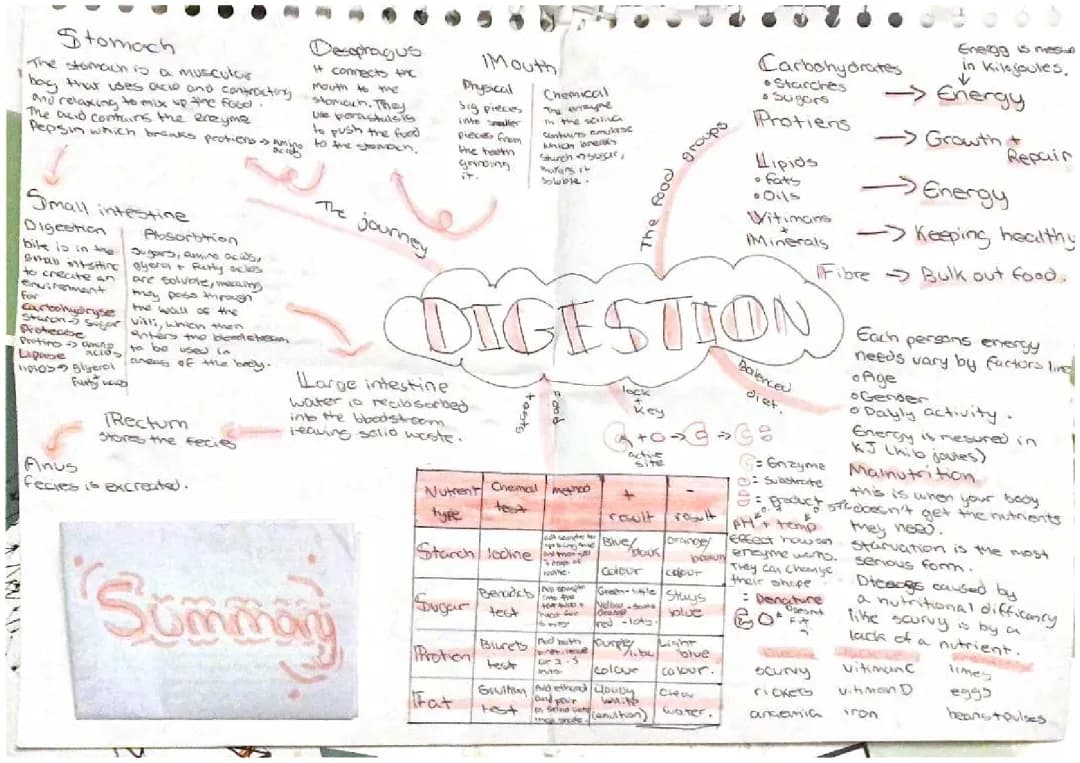 Stomach
The stomach is a muscular
bag that uses acid and contracting
and relaxing to mix up the food.
The acid contains the enzyme
Pepsin which breaks protiens → amino
acids
Oesophagus
It connects the
mouth to the
stomach. They
use
to push the food
to the stomach.
Mouth
Physical
big pieces
into smaller
pieces from
the teeth
grinding
it.
Chemical
The enzyme
in the saliva
contains amulase
which breaks
starch → sugar,
making it
soluble.
The food groups
Carbohydrates
• Starches
• Sugars
Energy is
in Kilojoules.
→ Energy
Protiens
→ Growth +
Repair
Lipids
• Fats
• Oils
→ Energy
Vitimans
+
Minerals
→ Keeping healthy
Fibre → Bulk out food.
The journey
Small intestine
Digestion
bile is in the
small intestine
to create an
environment
for
Carbohydryse
Starch → sugar
Protease
Protins → amino
acids
Lipase
lipids → glyerol
Fatty acids
Absorbtion
sugars, amino acids,
glyerol + fatty acids
are soluble, meaning
they pass through
the wall of the
villi, which then
enters the bloodstream
to be used in
areas of the body.
DIGESTION
Large intestine
water is
into the bloodstream
leaving solid waste.
Rectum
stores the fecies
Anus
fecies is excreated.
Summary
Food
tests
lock
+
key
active
site
= Enzyme
= Substrate
= Product
pH + temp
effect how an
enzyme works.
They can change
their shape
= Denature
Doesnt
fit
Nutrient type | Chemical test | method | + result | - result
Starch | Iodine | Blue/black colour | orange/brown colour
Sugar | test | Green - little | Stays blue
red - lots
Protien | Biurets test | Purple/ colour | Light blue colour.
Fat | Emultion test | Cloudy white (emultion) | Clear water.
Balanced
diet.
Each persons energy
needs vary by factors like
• Age
• Gender
• Dayly activity.
Energy is mesured in
KJ (kilo joules)
Malnutrition
this is when your body
doesn't get the nutrients
they need.
Starvation is the most
serious form.
caused by
a nutritional difficancy
like scurvy is by a
lack of a nutrient.
scurvy vitiman C limes
rickets vitiman D eggs
anaemia iron beans + pulses